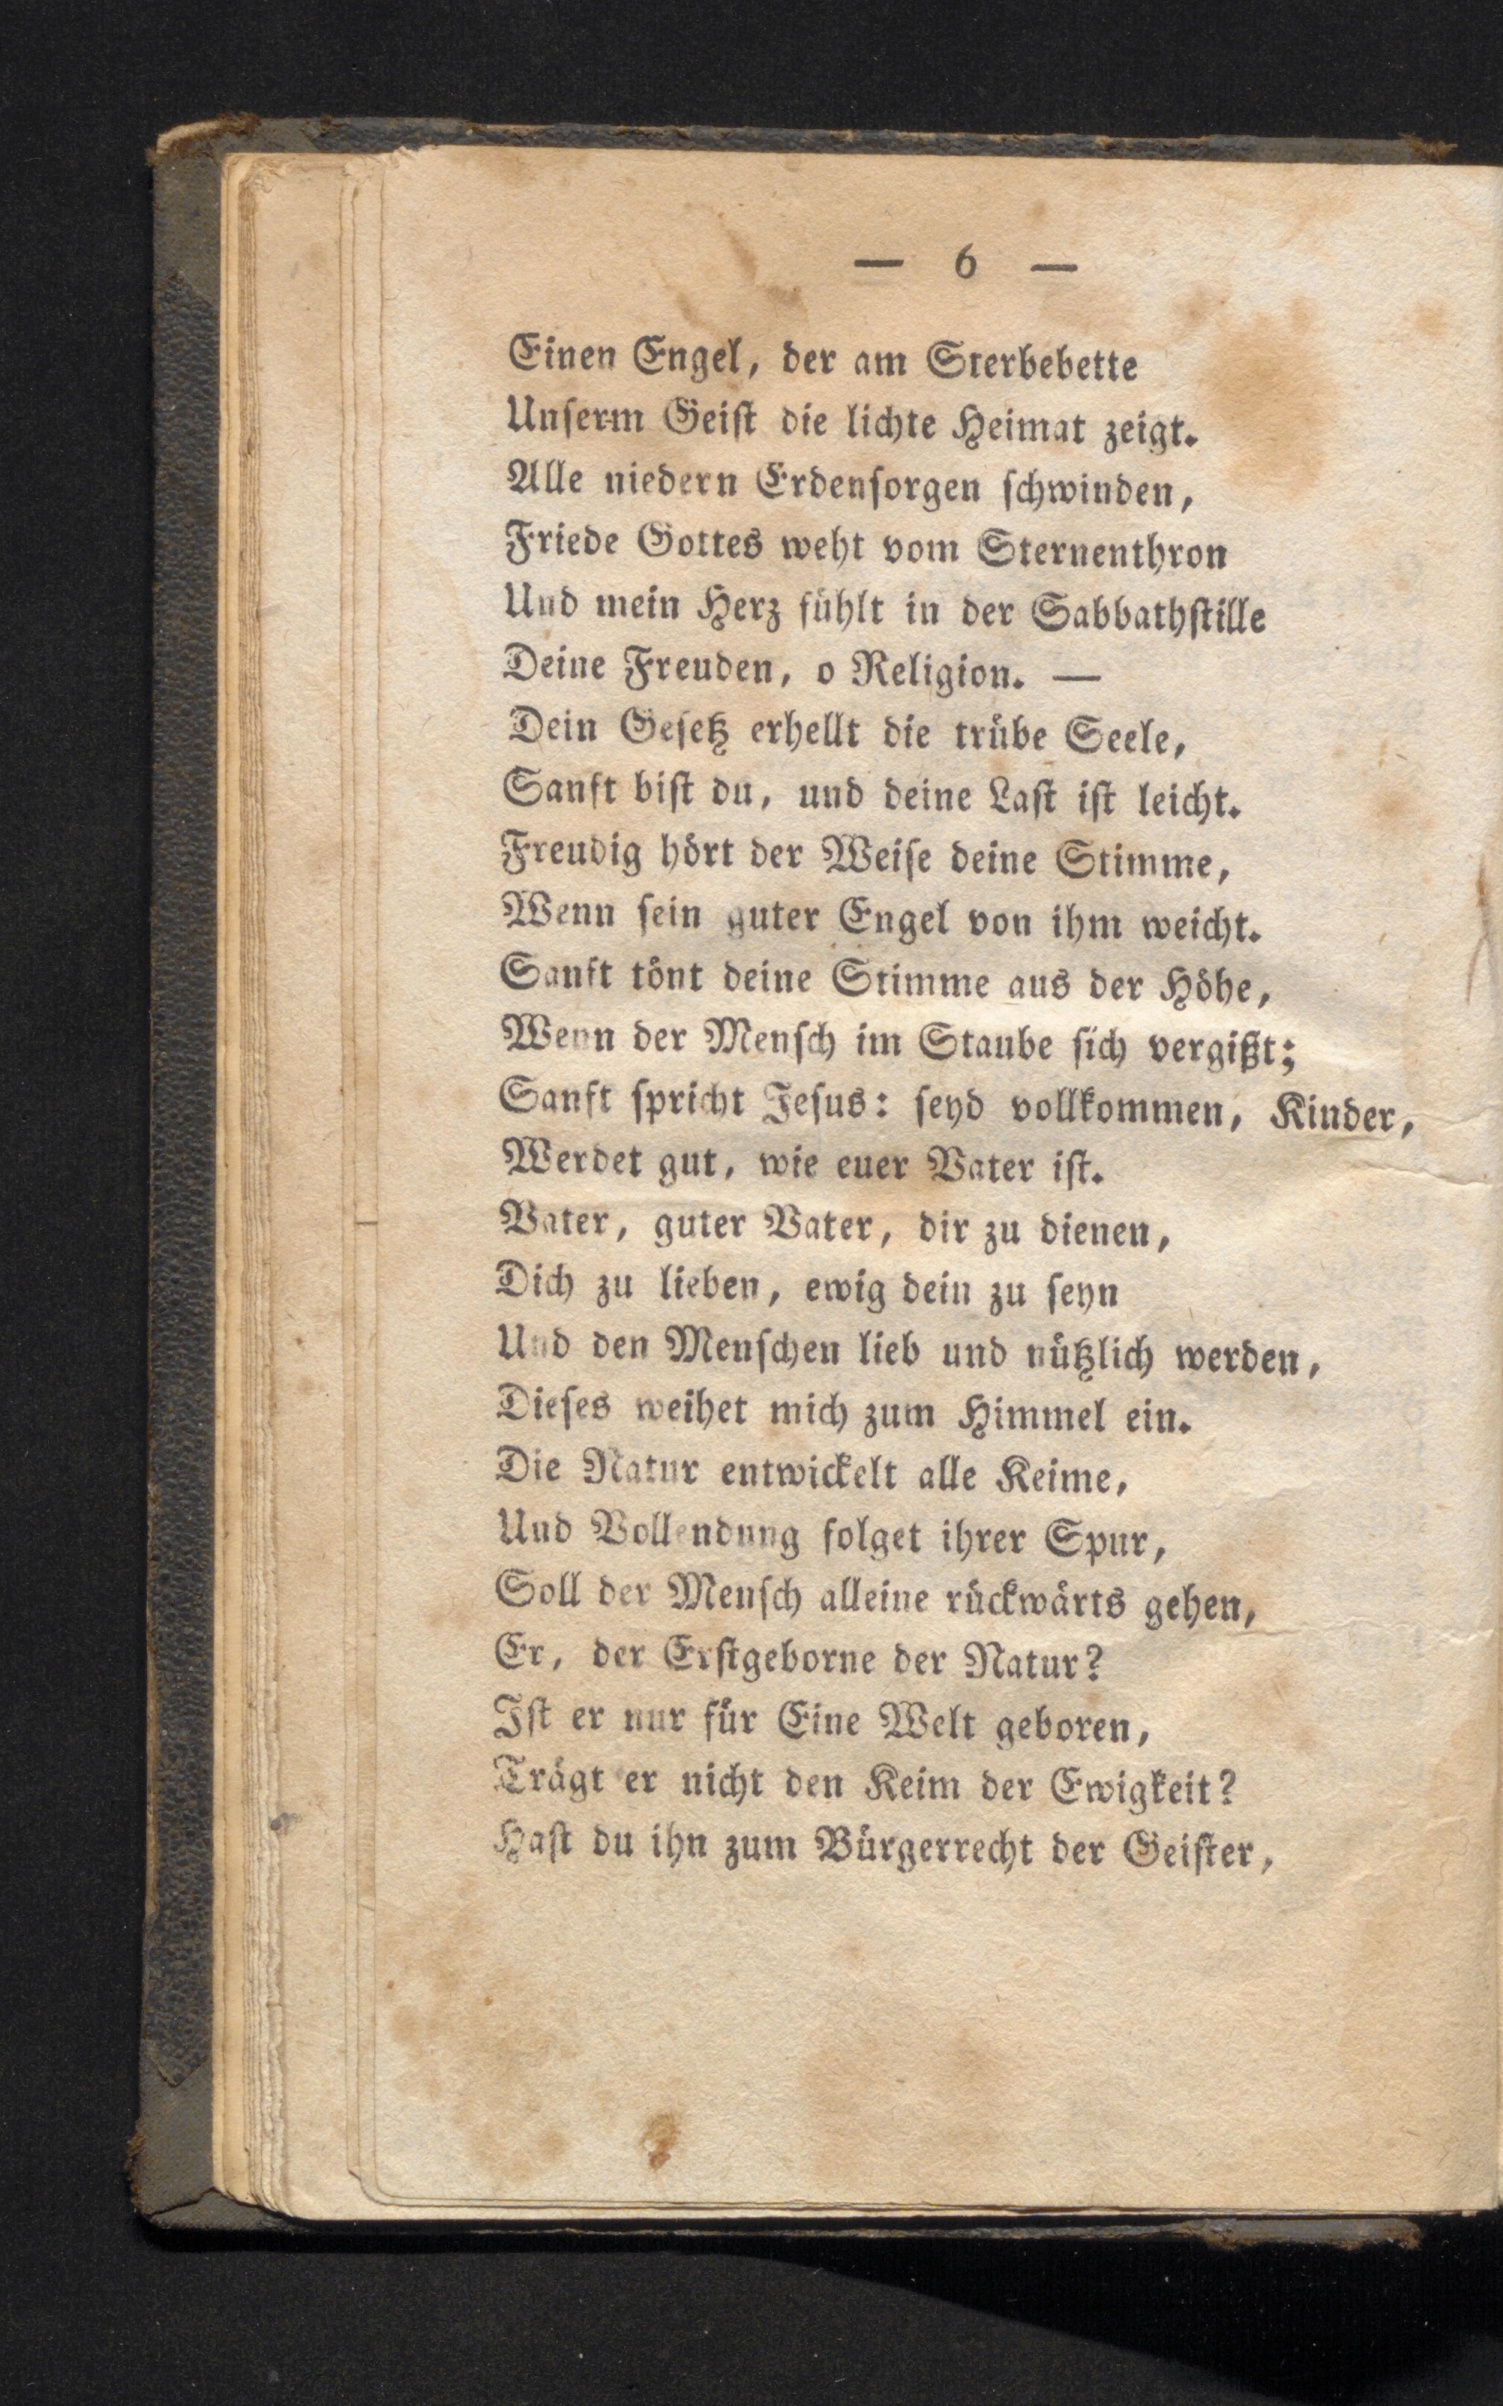 — 6 —
Einen Engel, der am Sterbebette
Unserm Geist die lichte Heimat zeigt.
Alle niedern Erdensorgen schwinden,
Friede Gottes weht vom Sternenthron
Und mein Herz fühlt in der Sabbathstille
Deine Freuden, o Religion. —
Dein Gesetz erhellt die trübe Seele,
Sanft bist du, und deine Last ist leicht.
Freudig hört der Weise deine Stimme,
Wenn sein guter Engel von ihm weicht.
Sanft tönt deine Stimme aus der Höhe,
Wenn der Mensch im Staube sich vergißt;
Sanft spricht Jesus: seyd vollkommen, Kinder,
Werdet gut, wie euer Vater ist.
Vater, guter Vater, dir zu dienen,
Dich zu lieben, ewig dein zu seyn
Und den Menschen lieb und nützlich werden,
Dieses weihet mich zum Himmel ein.
Die Natur entwickelt alle Keime,
Und Vollendung folget ihrer Spur,
Soll der Mensch alleine rückwärts gehen,
Er, der Erstgeborne der Natur?
Ist er nur für Eine Welt geboren,
Trägt er nicht den Keim der Ewigkeit?
Hast du ihn zum Bürgerrecht der Geister,